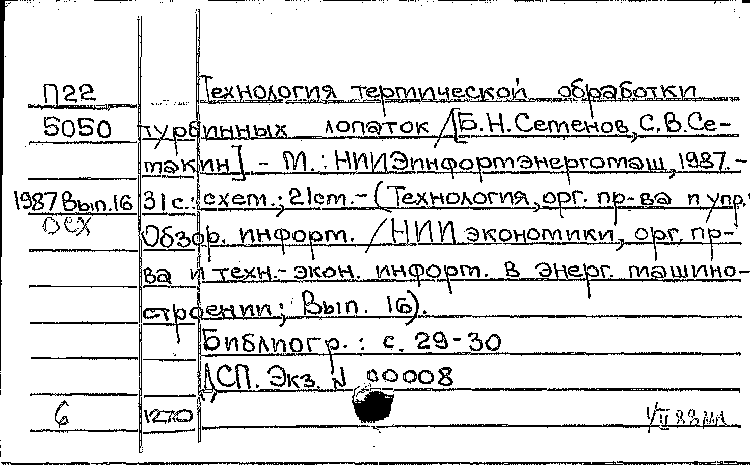 П22 Технология термической обработки
5050 турбинных лопаток /[Б.Н.Семенов, С.В.Се-
макин] - М.: НИИЭинформэнергомаш, 1987.-
1987 Вып.16 31с.: схем.; 21см.- (Технология, орг. пр-ва и упр.:
ОСХ Обзор. информ. / НИИ экономики, орг. пр-
ва и техн.-экон. информ. в энерг. машино-
строении; Вып. 16).
Библиогр.: с. 29-30
ДСП. Экз. N 00008
6 1270